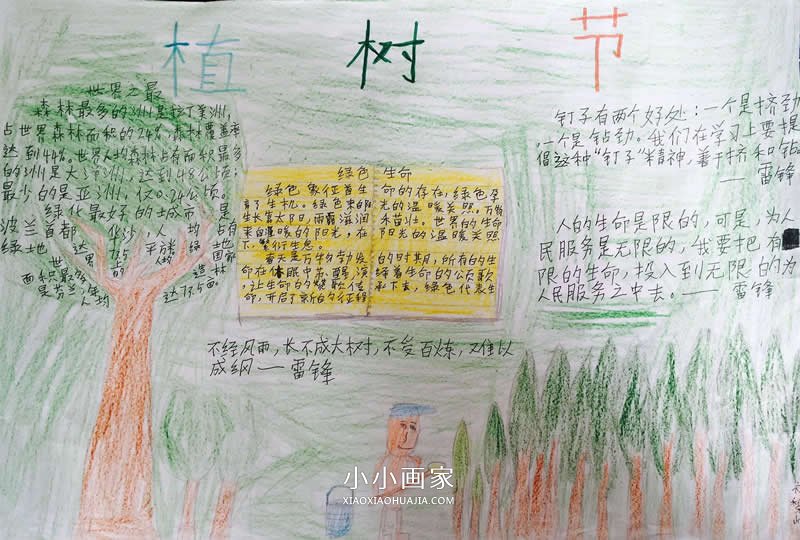 植 树 节
世界之最
森林最多的洲是拉丁美洲,
占世界森林面积的24%,森林覆盖率
达到44%。世界人均森林占有面积最多
的洲是大洋洲,达到4.8公顷。
最少的是亚洲,仅0.24公顷。
绿化最好的城市是
波兰首都华沙,人均占有
绿地达 平方 绿地
世界
是芬兰人均达
绿色 生命
绿色象征着生
命的存在,绿色孕
育了生机。绿色来自
光的温暖美照。万物
生长靠太阳,雨露滋润
禾苗壮。世界的生命
来自温暖的阳光,在
阳光的温暖美照
下,繁衍生息。
春天是万物劳动
的时期,所有的生
命在休眠中苏醒,
生命的
命,开启了新的征程
下去,绿色代表生
不经风雨,长不成大树,不受百炼,难以
成钢——雷锋
钉子有两个好处:一个是挤劲
,一个是钻劲。我们在学习上要提
倡这种“钉子”精神,善于挤和钻。
——雷锋
人的生命是限的,可是,为人
民服务是无限的,我要把有
限的生命,投入到无限的为
人民服务之中去。——雷锋
小小画家
XIAOXIAOHUAJIA.COM